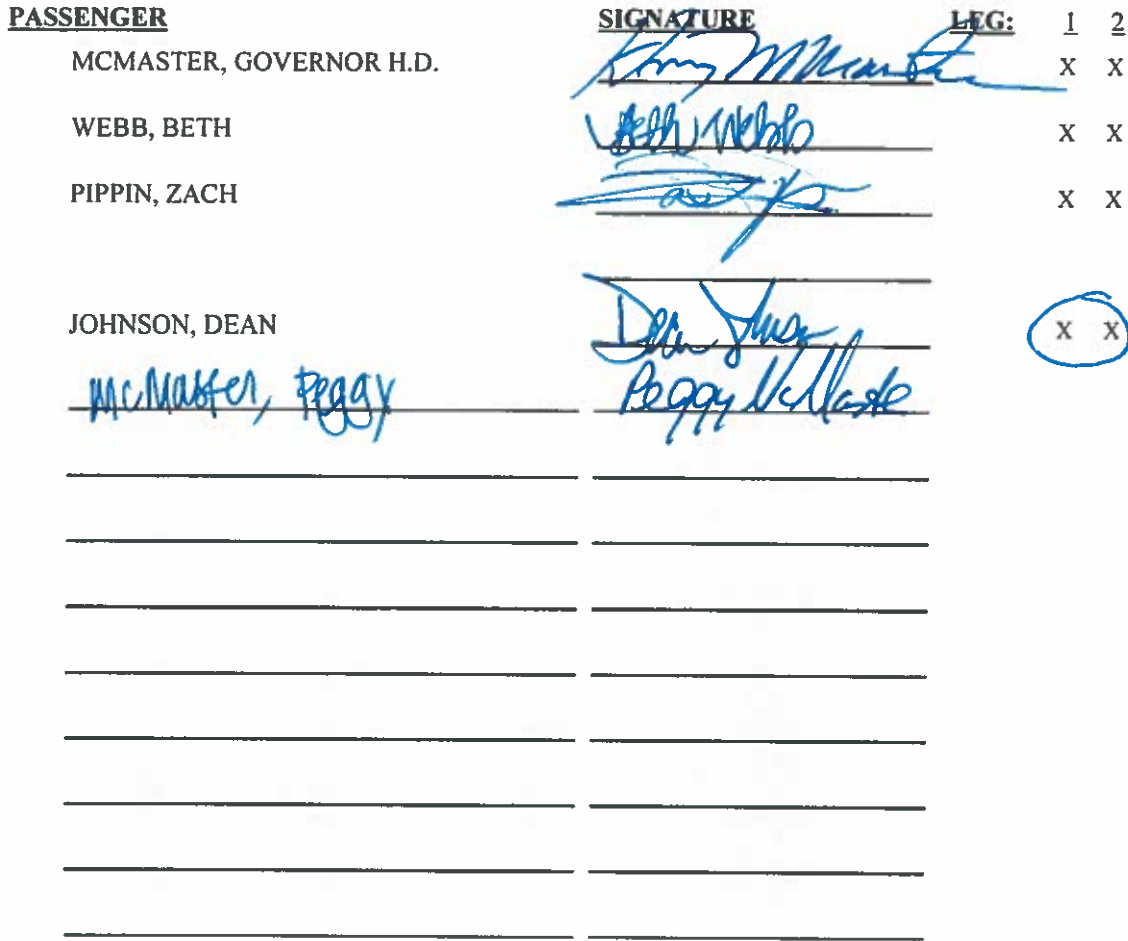 PASSENGER SIGNATURE LEG: 1 2
MCMASTER, GOVERNOR H.D. Henry McMaster X X
WEBB, BETH Beth Webb X X
PIPPIN, ZACH X X
JOHNSON, DEAN Dean Johnson X X
McMaster, Peggy Peggy McMaster